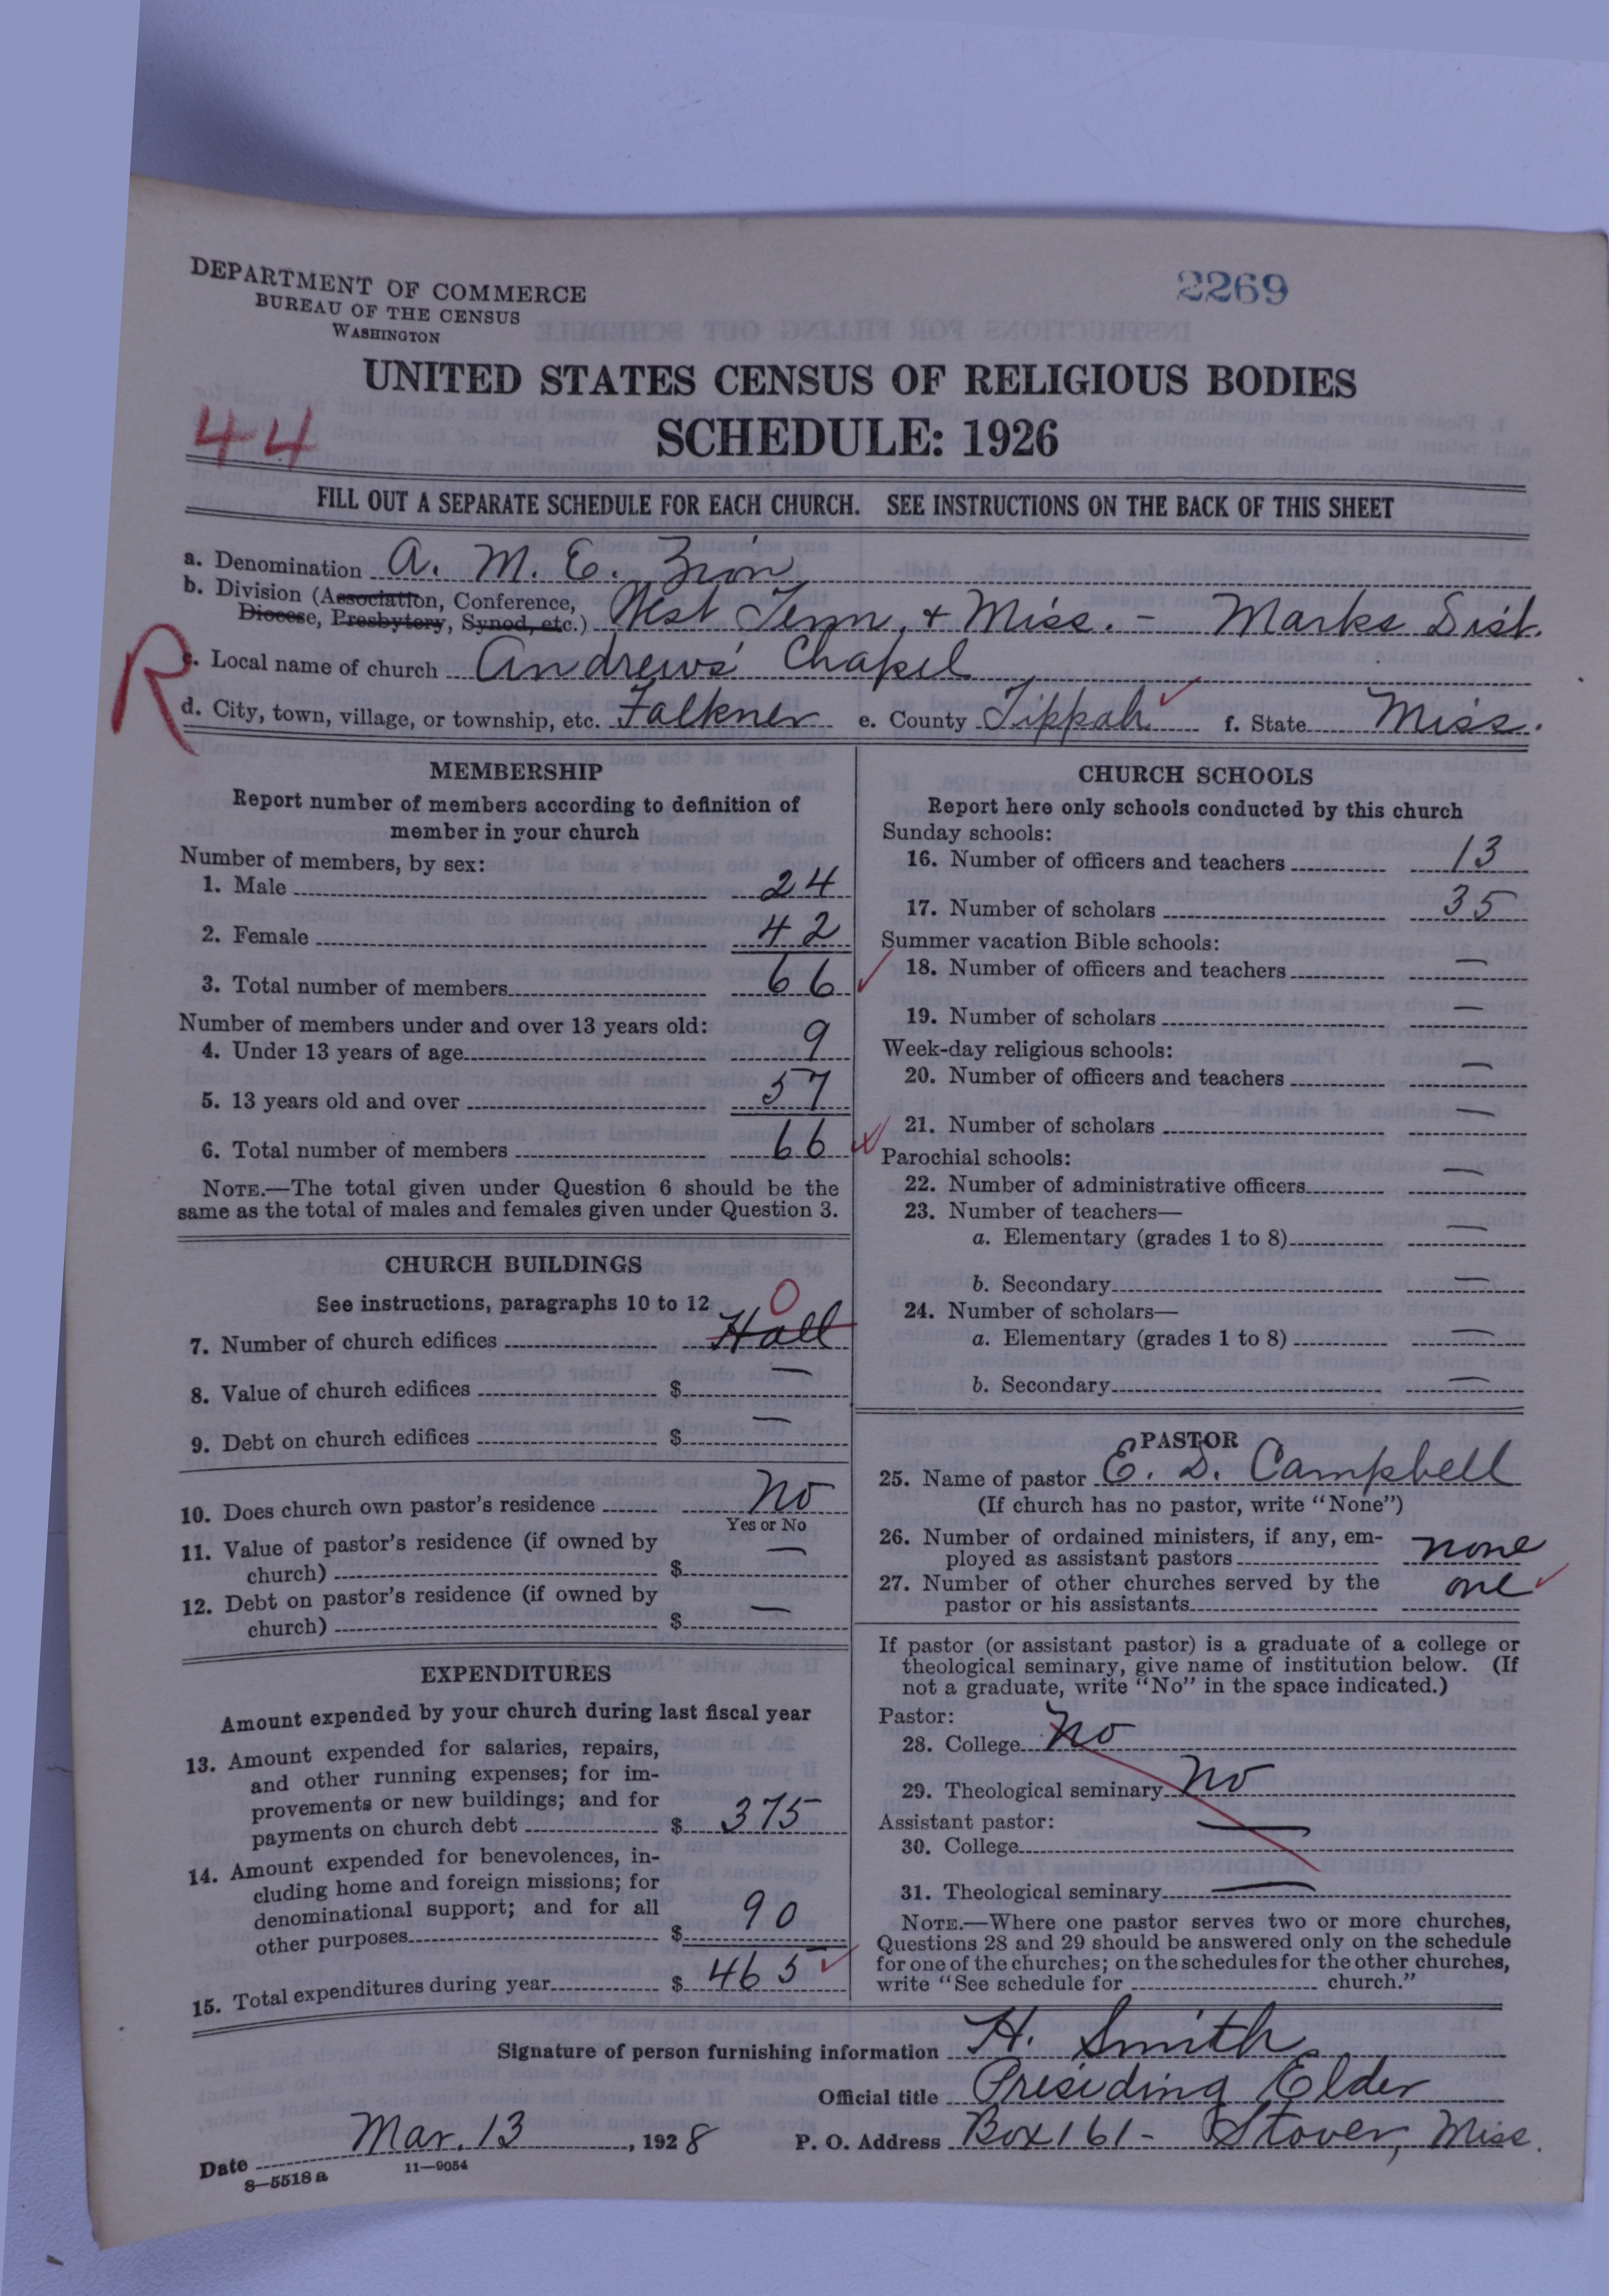 DEPARTMENT OF COMMERCE
BUREAU OF THE CENSUS
WASHINGTON
2269
UNITED STATES CENSUS OF RELIGIOUS BODIES
SCHEDULE: 1926
44
FILL OUT A SEPARATE SCHEDULE FOR EACH CHURCH. SEE INSTRUCTIONS ON THE BACK OF THIS SHEET
a. Denomination A. M. E. Zion
b. Division (Association, Conference,
Diocese, Presbytery, Synod, etc.) West Tenn. + Miss. - Marks Dist.
R
c. Local name of church Andrews' Chapel
d. City, town, village, or township, etc. Falkner e. County Tippah f. State Miss.
MEMBERSHIP
Report number of members according to definition of
member in your church
Number of members, by sex:
1. Male 24
2. Female 42
3. Total number of members 66
Number of members under and over 13 years old:
4. Under 13 years of age 9
5. 13 years old and over 57
6. Total number of members 66
NOTE.—The total given under Question 6 should be the
same as the total of males and females given under Question 3.
CHURCH BUILDINGS
See instructions, paragraphs 10 to 12
0
7. Number of church edifices Hall
8. Value of church edifices $ —
9. Debt on church edifices $ —
10. Does church own pastor's residence No
Yes or No
11. Value of pastor's residence (if owned by
church) $ —
12. Debt on pastor's residence (if owned by
church) $ —
EXPENDITURES
Amount expended by your church during last fiscal year
13. Amount expended for salaries, repairs,
and other running expenses; for im-
provements or new buildings; and for
payments on church debt $ 375
14. Amount expended for benevolences, in-
cluding home and foreign missions; for
denominational support; and for all
other purposes $ 90
15. Total expenditures during year $ 465
CHURCH SCHOOLS
Report here only schools conducted by this church
Sunday schools:
16. Number of officers and teachers 13
17. Number of scholars 35
Summer vacation Bible schools:
18. Number of officers and teachers —
19. Number of scholars —
Week-day religious schools:
20. Number of officers and teachers —
21. Number of scholars —
Parochial schools:
22. Number of administrative officers —
23. Number of teachers—
a. Elementary (grades 1 to 8) —
b. Secondary —
24. Number of scholars—
a. Elementary (grades 1 to 8) —
b. Secondary —
PASTOR
25. Name of pastor E. D. Campbell
(If church has no pastor, write "None")
26. Number of ordained ministers, if any, em-
ployed as assistant pastors none
27. Number of other churches served by the
pastor or his assistants one
If pastor (or assistant pastor) is a graduate of a college or
theological seminary, give name of institution below. (If
not a graduate, write "No" in the space indicated.)
Pastor:
28. College No
29. Theological seminary No
Assistant pastor:
30. College —
31. Theological seminary —
NOTE.—Where one pastor serves two or more churches,
Questions 28 and 29 should be answered only on the schedule
for one of the churches; on the schedules for the other churches,
write "See schedule for church."
Signature of person furnishing information H. Smith
Official title Presiding Elder
Date Mar. 13, 1928 P. O. Address Box 161 - Stover, Miss.
8—5518 a 11—9054